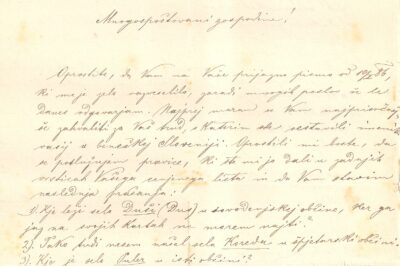 Mnogospoštovani gospodine!
Oprostite, da Vam na Vaše prijazno pismo od 10/2 86,
ki me je zelo razveselilo, zaradi mnogih poslov, še le
danes odgovarjam. Najprej moram se Vam najprisrčnej
še zahvaliti za Vaš trud, s katerim ste sestavili imenik
vasij v beneškej Sloveniji. Oprostili mi bote, da
se poslužujem pravice, ki ste mi jo dali v zadnjih
vrsticah Vašega cenjenega lista in da Vam stavim
naslednja prašanja:
1.) Kje leži selo Duži (Dus) v sovodenjskej občini, ker ga
jaz na svojih kartah ne morem najti?
2.) Tako tudi nesem našel sela Koreda v špjetarski občini.
3.) Kje je selo v isti občini?